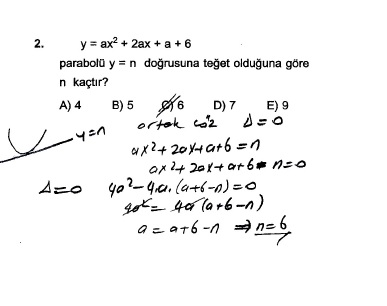 2. y = ax² + 2ax + a + 6
parabolü y = n doğrusuna teğet olduğuna göre
n kaçtır?
A) 4 B) 5 C) 6 D) 7 E) 9
ortak çöz Δ=0
y=n
ax²+2ax+a+6=n
ax²+2ax+a+6-n=0
Δ=0 4a²-4.a.(a+6-n)=0
4a²=4a(a+6-n)
a=a+6-n ⇒ n=6